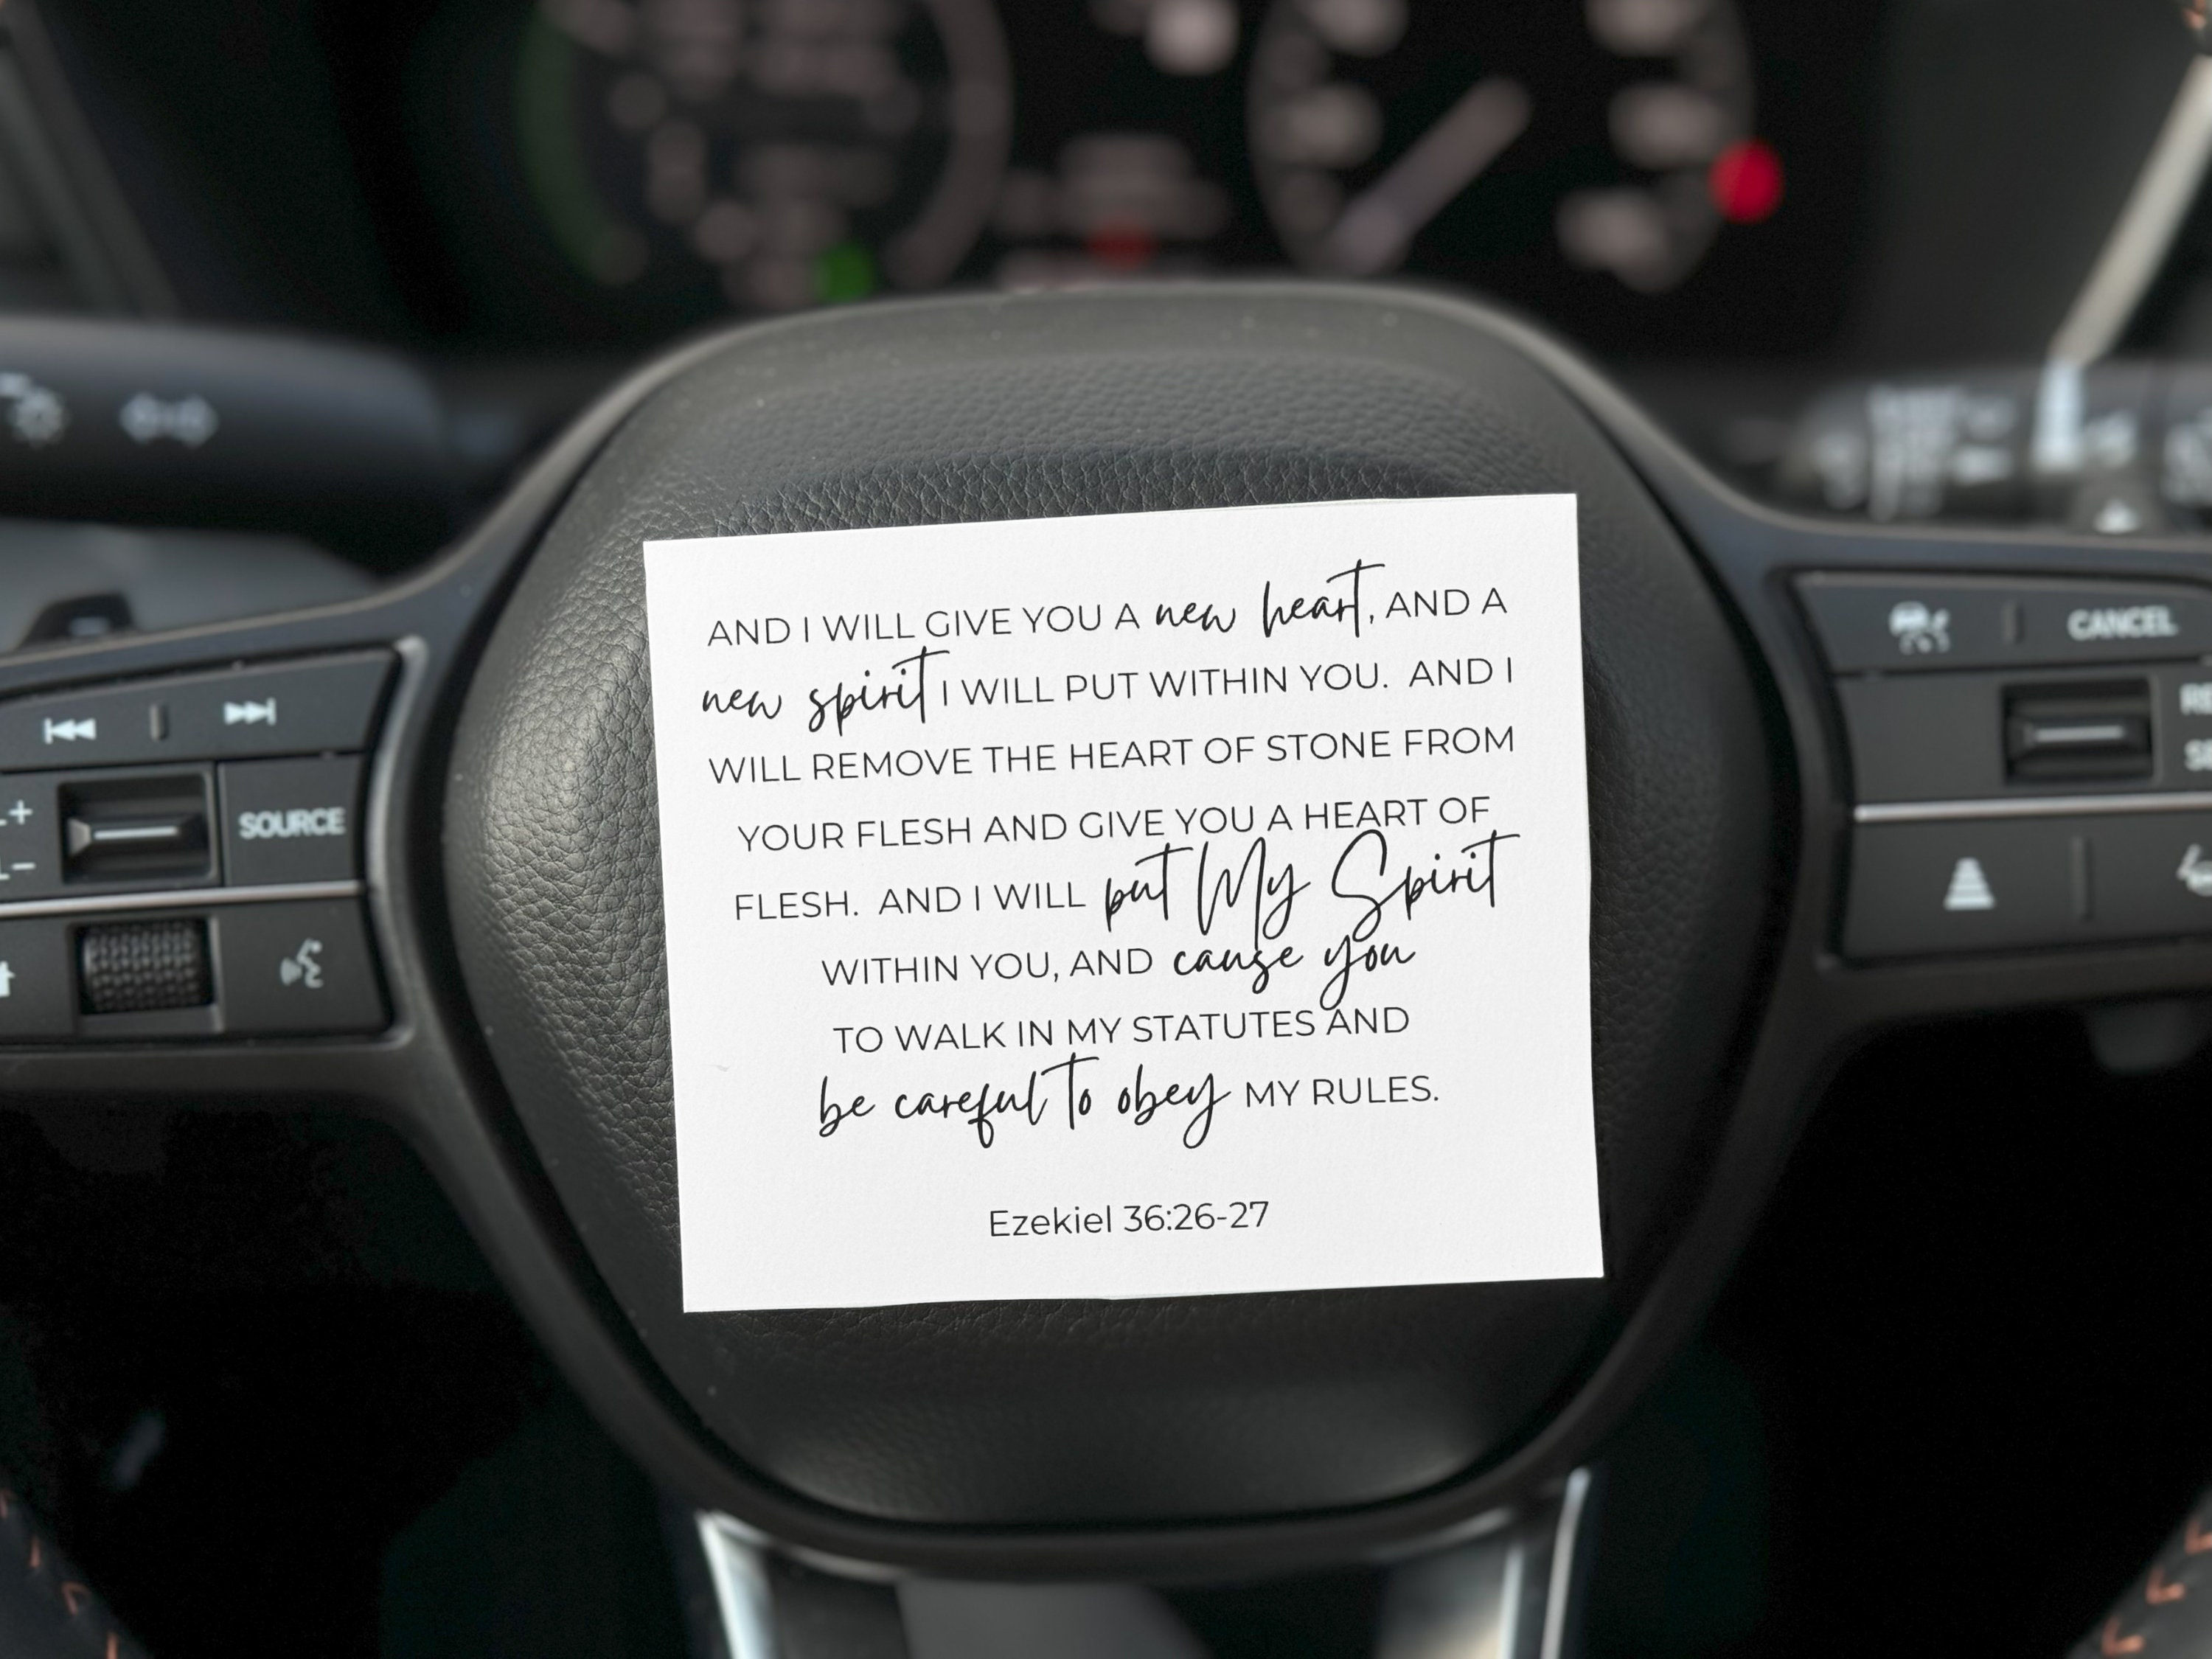 AND I WILL GIVE YOU A new heart, AND A
new spirit I WILL PUT WITHIN YOU. AND I
WILL REMOVE THE HEART OF STONE FROM
YOUR FLESH AND GIVE YOU A HEART OF
FLESH. AND I WILL put My Spirit
WITHIN YOU, AND cause you
TO WALK IN MY STATUTES AND
be careful to obey MY RULES.
Ezekiel 36:26-27
SOURCE
CANCEL